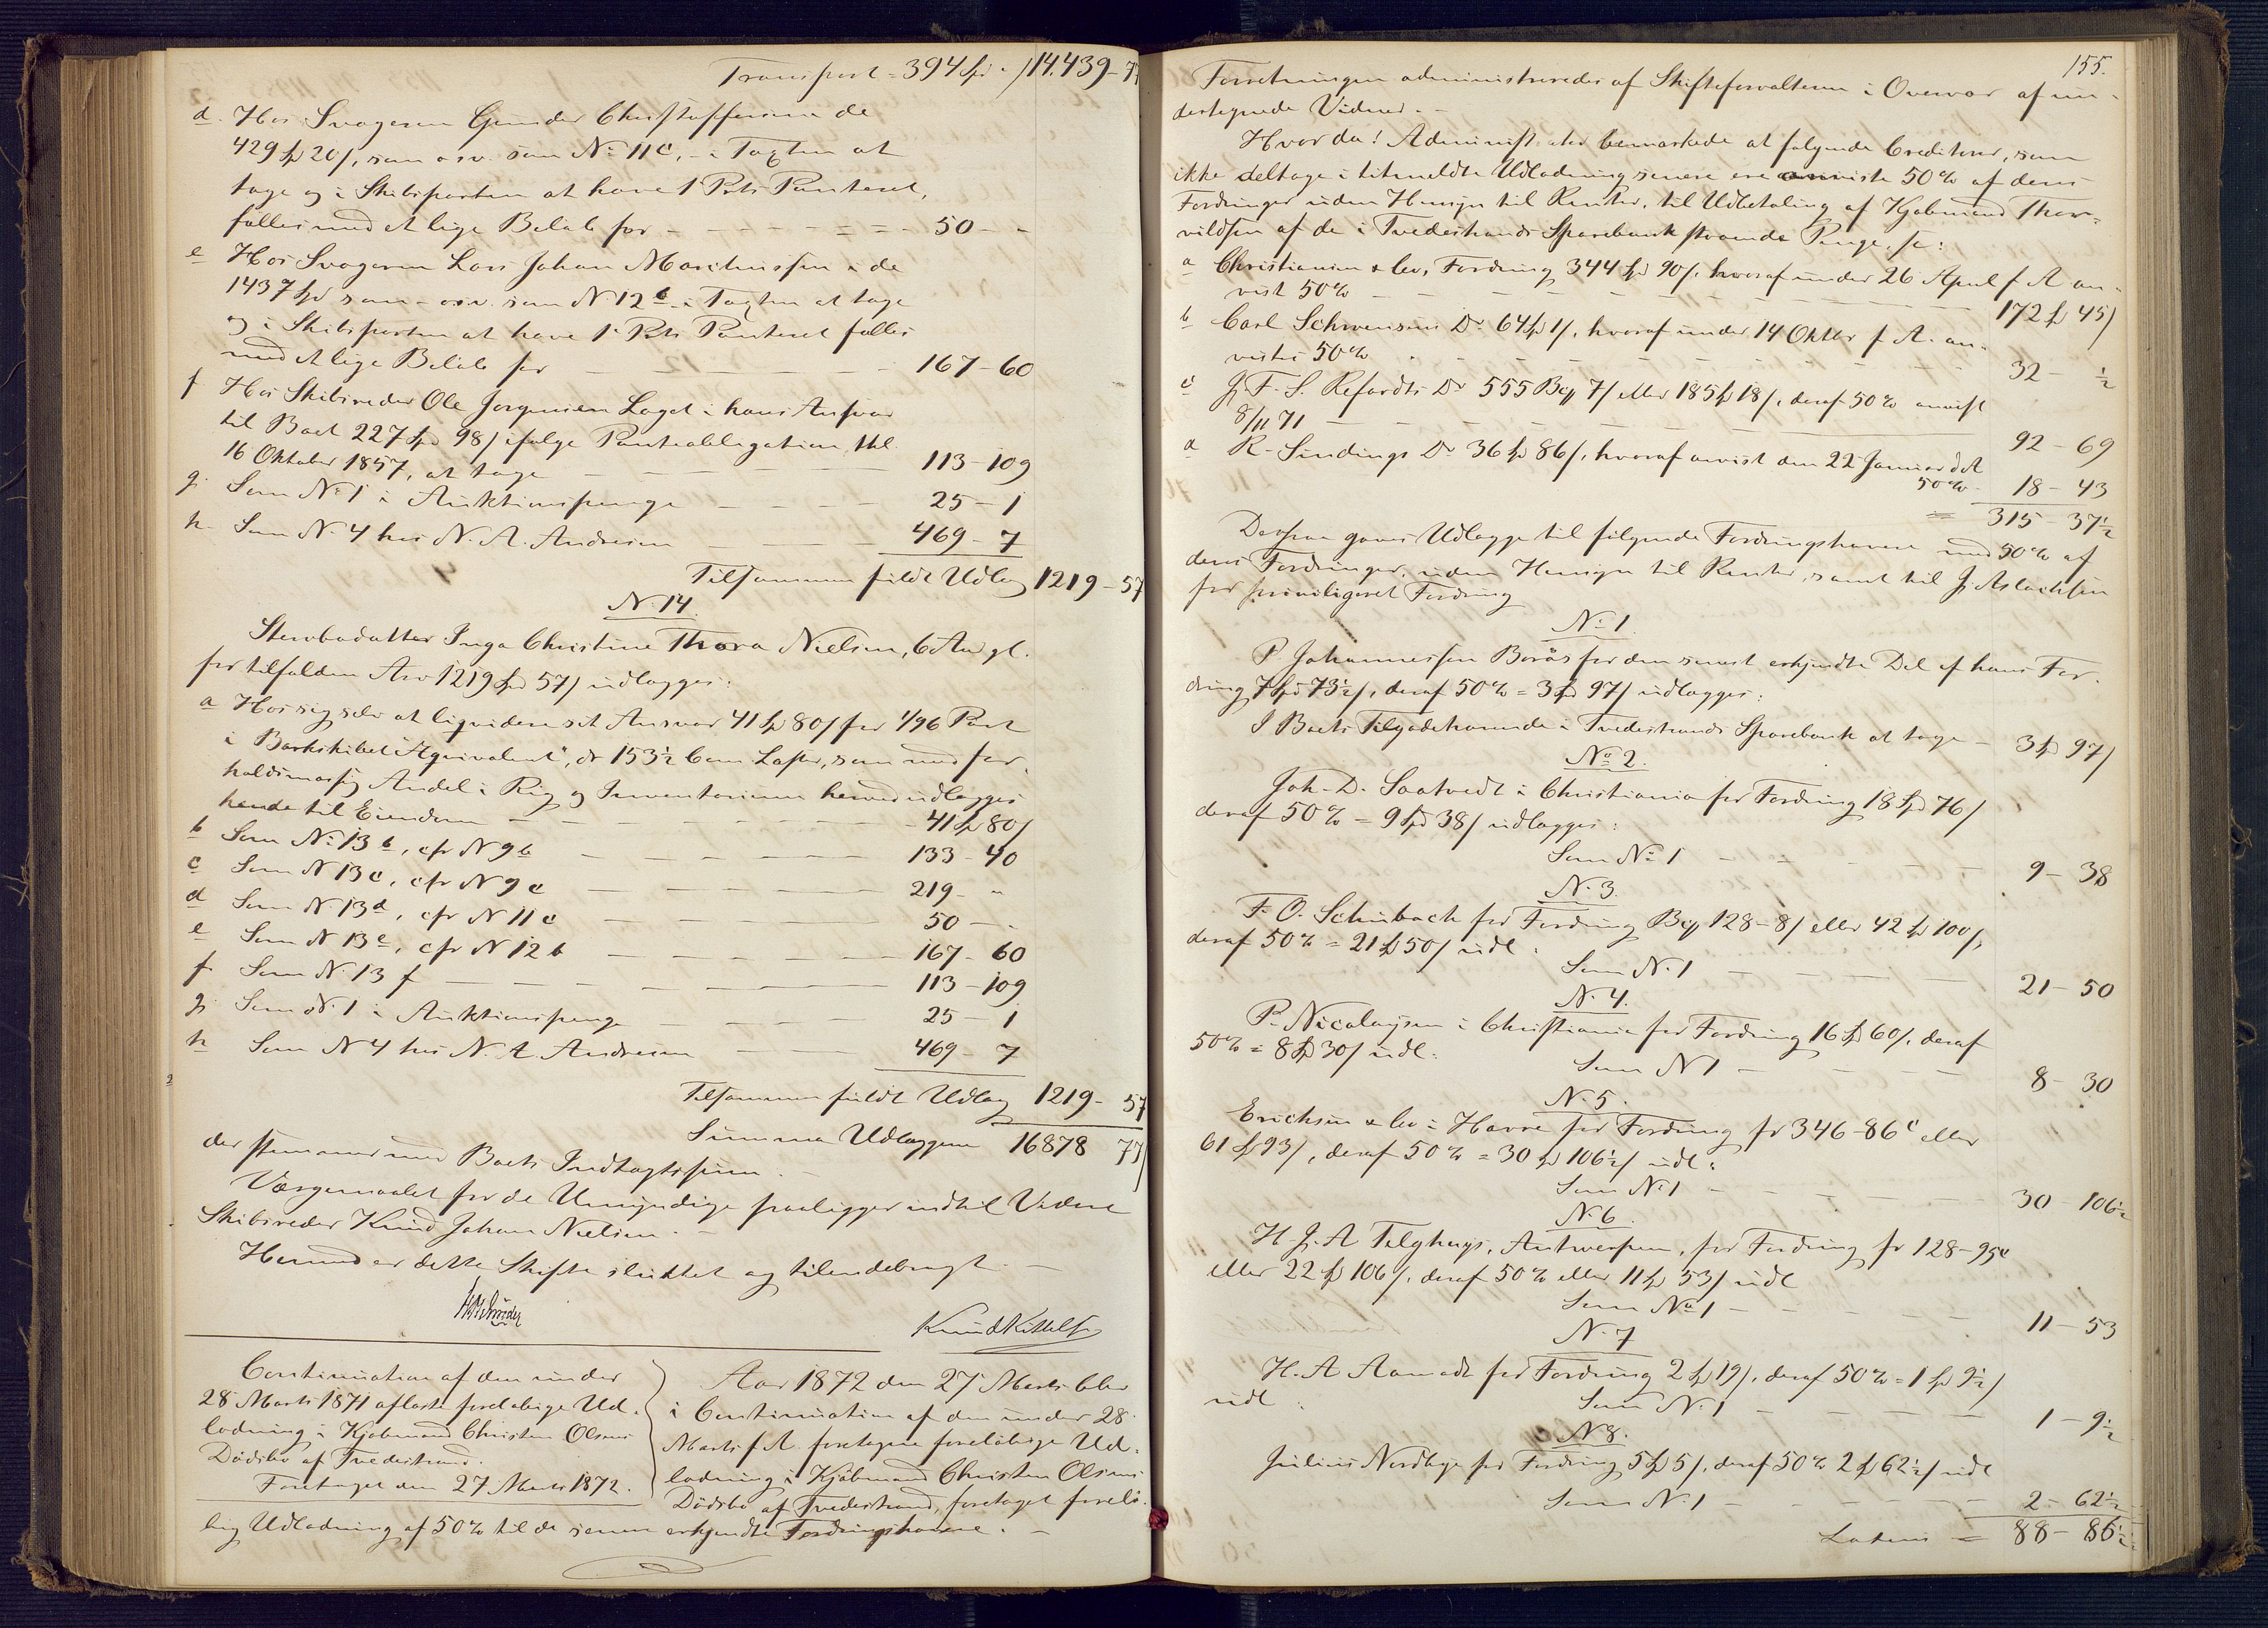 Transport = 394 Spd - / 14.439-77
d. Hos Svogeren Gunder Christoffersen de
429 Spd 20/, som osv. som No 11c, - i Tagten at
tage og i Skibsparten at have 1 Pr's Panteret,
fælles med et lige Beløb for - - - 50 - -
e Hos Svogeren Lars Johan Marchussen i de
1437 Spd som - osv. som No 12 b i Tagten at tage
og i Skibsparten at have 1 Pr's Panteret fælles
med et lige Beløb for - - - 167-60
f Hos Skibsreder Ole Jørgensen Laget i hans Ansvar
til Boet 227 Spd 98/ ifølge Panteobligation thl.
16 Oktober 1857, at tage - - - 113-109
g. Som No 1 i Auktionspenge - - - 25-1
h Som No 4 hos N. A. Andresen - - - 469-7
Tilsammen fuldt Udlæg 1219-57
No 14.
Stervbodatter Inga Christine Thora Nielsen, 6 Aar gl.
for tilfalden Arv 1219 Spd 57/ udlægges:
a Hos sig selv at liqvidere sit Ansvar 41 Spd 80/ for 1/96 Part
i Barkskibet "Æqvivalent", dr 153½ Com. Læster, som med for-
holdsmæssig Andel i Rig og Inventarium herved udlægges
hende til Eiendom - - - 41 Spd 80/
b Som No 13 b, cfr N 9 b - - - 133-40
c Som N 13 c, cfr N 9 c - - - 219- "
d Som N. 13 d, cfr N 11 c - - - 50 - -
e Som N 13 e, cfr N 12 b - - - 167-60
f. Som N. 13 f - - - 113-109
g. Som No 1 i Auktionspenge - - - 25-1
h Som N 4 hos N. A. Andresen - - - 469-7
Tilsammen fuldt Udlæg 1219-57
Summa Udlæggene 16878 77/
der stemmer med Boets Indtægtssum.
Værgemaalet for de Umyndige paaligger indtil Videre
Skibsreder Knud Johan Nielsen. -
Hermed er dette Skifte sluttet og tilendebragt. -
Knud Kittelsen
Continuation af den under
28 Marts 1871 afløste foreløbige Ud-
lodning i Kjøbmand Christen Olsens
Dødsbo af Tvedestrand.
Foretaget den 27 Marts 1872.
Aar 1872 den 27 Marts blev
i Continuation af den under 28
Marts f. A. foretagne foreløbige Ud-
lodning i Kjøbmand Christen Olsens
Dødsbo af Tvedestrand, foretaget forelø-
big Udlodning af 50% til de senere erkjendte Fordringshavere. -
155.
Forretningen administreredes af Skifteforvalteren i Overvær af un-
dertegnede Vidner. -
Hvor da! Administrator bemærkede at følgende Creditorer, som
ikke deltage i titmeldte Udlodning senere ere anviste 50% af deres
Fordringer uden Hensyn til Renter, til Udbetaling af Kjøbmand Thor-
vildsen af de i Tvedestrands Sparebank staaende Penge, sc:
a Christiansen & Co, Fordring 344 Spd 90/, hvoraf under 26 April f A an-
vist 50% - - - 172 Spd 45/
b Carl Schwensens Do 64 Spd 1/, hvoraf under 14 Oktbr f. A. an-
vistes 50% - - - 32 - ½
c J. F. S. Refardts Do 555 Bco 7/ eller 185 Spd 18/, deraf 50% anvist
8/11 71 - - - 92-69
d R. Sindings Do 36 Spd 86/, hvoraf anvist den 22 Januar d A
50% - 18-43
= 315-37½
Derpaa gaves Udlægge til følgende Fordringshavere med 50% af
deres Fordringer, uden Hensyn til Renter, samt til J. Aslachsen
for priviligeret Fordring
No 1.
P. Johannessen Borøs for den senest erkjendte Del af hans For-
dring 7 Spd 73½/, deraf 50% = 3 Spd 97/ udlægges:
I Boets Tilgodehavende i Tvedestrands Sparebank at tage - 3 Spd 97/
No 2.
Joh. D. Saatvedt i Christiania for Fordring 18 Spd 76/
deraf 50% = 9 Spd 38/ udlægges:
Som No 1 - - - 9-38
N. 3.
F. O. Schübach for Fordring Bco 128-8/ eller 42 Spd 100/,
deraf 50% = 21 Spd 50/ udl:
Som N. 1 - - - 21-50
N. 4.
P. Nicolaysen i Christiania for Fordring 16 Spd 60/, deraf
50% = 8 Spd 30/ udl:
Som N 1 - - - 8-30
N. 5.
Erichsen & Co i Havre for Fordring fr 346-86 c eller
61 Spd 93/, deraf 50% = 30 Spd 106½/ udl:
Som No 1 - - - 30-106½
N. 6.
H. J. A Telghuys, Antwerpen, for Fordring fr 128-95 c
eller 22 Spd 106/, deraf 50% eller 11 Spd 53/ udl
Som No 1 - - - 11-53
N. 7
H. A Aamodt for Fordring 2 Spd 19/, deraf 50% = 1 Spd 9½/
udl:
Som No. 1 - - - 1-9½
N 8.
Julius Nordbye for Fordring 5 Spd 5/, deraf 50% 2 Spd 62½/ udl
Som N. 1 - - - 2-62½
Latus = 88-86½